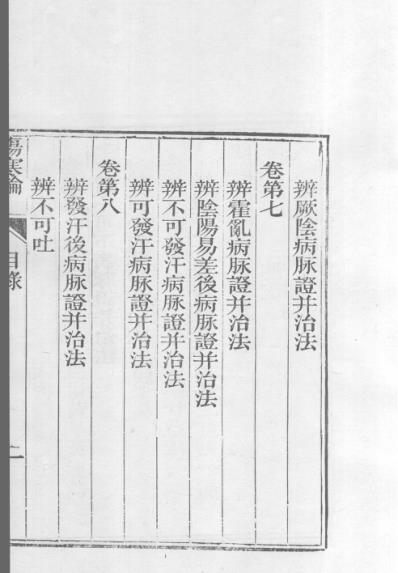 辨厥陰病脉證并治法
卷第七
辨霍亂病脉證并治法
辨陰陽易差後病脉證并治法
辨不可發汗病脉證并治法
辨可發汗病脉證并治法
卷第八
辨發汗後病脉證并治法
辨不可吐
傷寒論 目錄 二